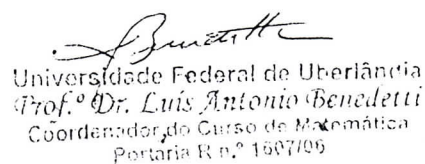 Benedetti
Universidade Federal de Uberlândia
Prof.º Dr. Luís Antonio Benedetti
Coordenador do Curso de Matemática
Portaria R n.º 1607/06